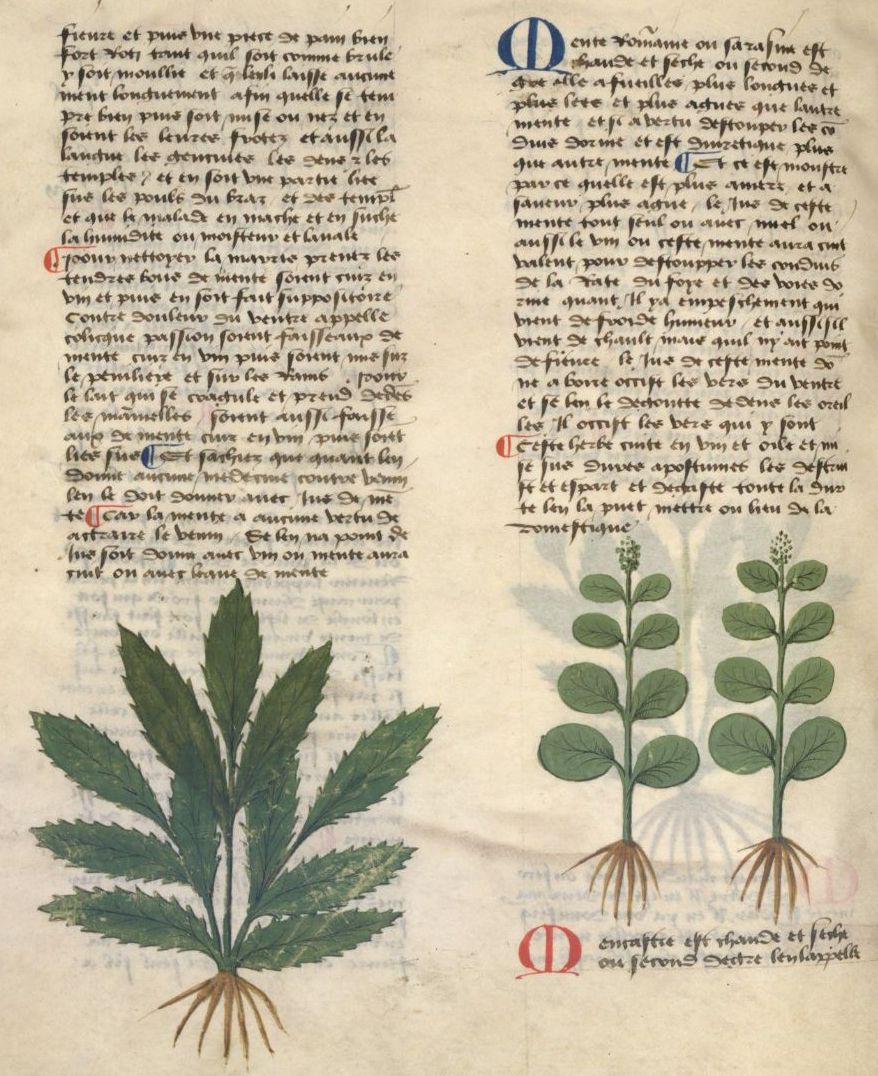 fieure et puis vne piece de pain bien
fort Roti tant quil soit comme brule
y soit moullie et q̄ leuli laisse aucune
ment longuement afin quelle se tem
pre bien puis soit mise ou nez et en
soient les leures frotez et aussi la
langue les genciues les dens z les
temples / et en soit vne partie liee
sus les pouls du braz et des templ̄
et que le malade en mache et en suche
la humdite ou moisteur et lauale
¶ Pour nettoyer la mavris prenez les
tendres bous de mente soient cuiz en
vin et puis en soit fait suppositoire
Contre douleur du ventre appelle
colicque passion soient faisseaux de
mente cuiz en vin puis soient mis sur
le peniliere et sur les Rains . Pour
le lait qui se coagule et prend dedēs
les māmelles soient aussi faisse
aux de mente cuiz en vin puis soiet
liez sus ¶ Et sachiez que quant len
donne aucune medecine contre venin
len le doit donner auec Jus de mē
te ¶ Car la mente a aucune vertu de
attraire le venin / Se len na point de
Jus soit donne auec vin ou mente aura
cuit ou auec leaue de mente
Mente Rom̄aine ou sarasine est
chaude et seche ou second de
gre elle a fueilles plus longues et
plus lees et plus agues que lautre
mente et si a vertu destouper les cō
duis dorine et est diuretique plus
que autre mente ¶ Et ce est monstre
par ce quelle est plus amere et a
saueur plus ague . le Jus de ceste
mente tout seul ou auec miel ou
aussi le vin ou ceste mente aura cuit
valent pour destoupper les conduis
de la Rate du foye et des voies do
rine quant Il ya empeschement qui
vient de froide humeur / et aussi sil
vient de chault mais quil ny ait point
de fieure . le Jus de ceste mente dō
ne a boire occist les vers du ventre
et se len le degoutte dedens les oreil
les Il occist les vers qui y sont
¶ Ceste herbe cuite en vin et oile et mi
se sus dures apostumes les destrui
st et espart et degaste toute la dur
te len la puet mettre ou lieu de la
domestique
Mencastre est chaude et seche
ou second degre len lappelle